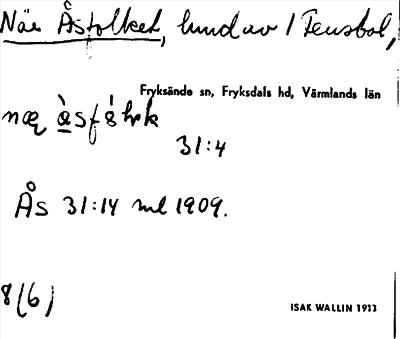 När Åsfolket, hundav / Tensbol,
Fryksände sn, Fryksdals hd, Värmlands län
31:4
Ås 31:14 ml 1909.
8(6)
ISAK WALLIN 1933